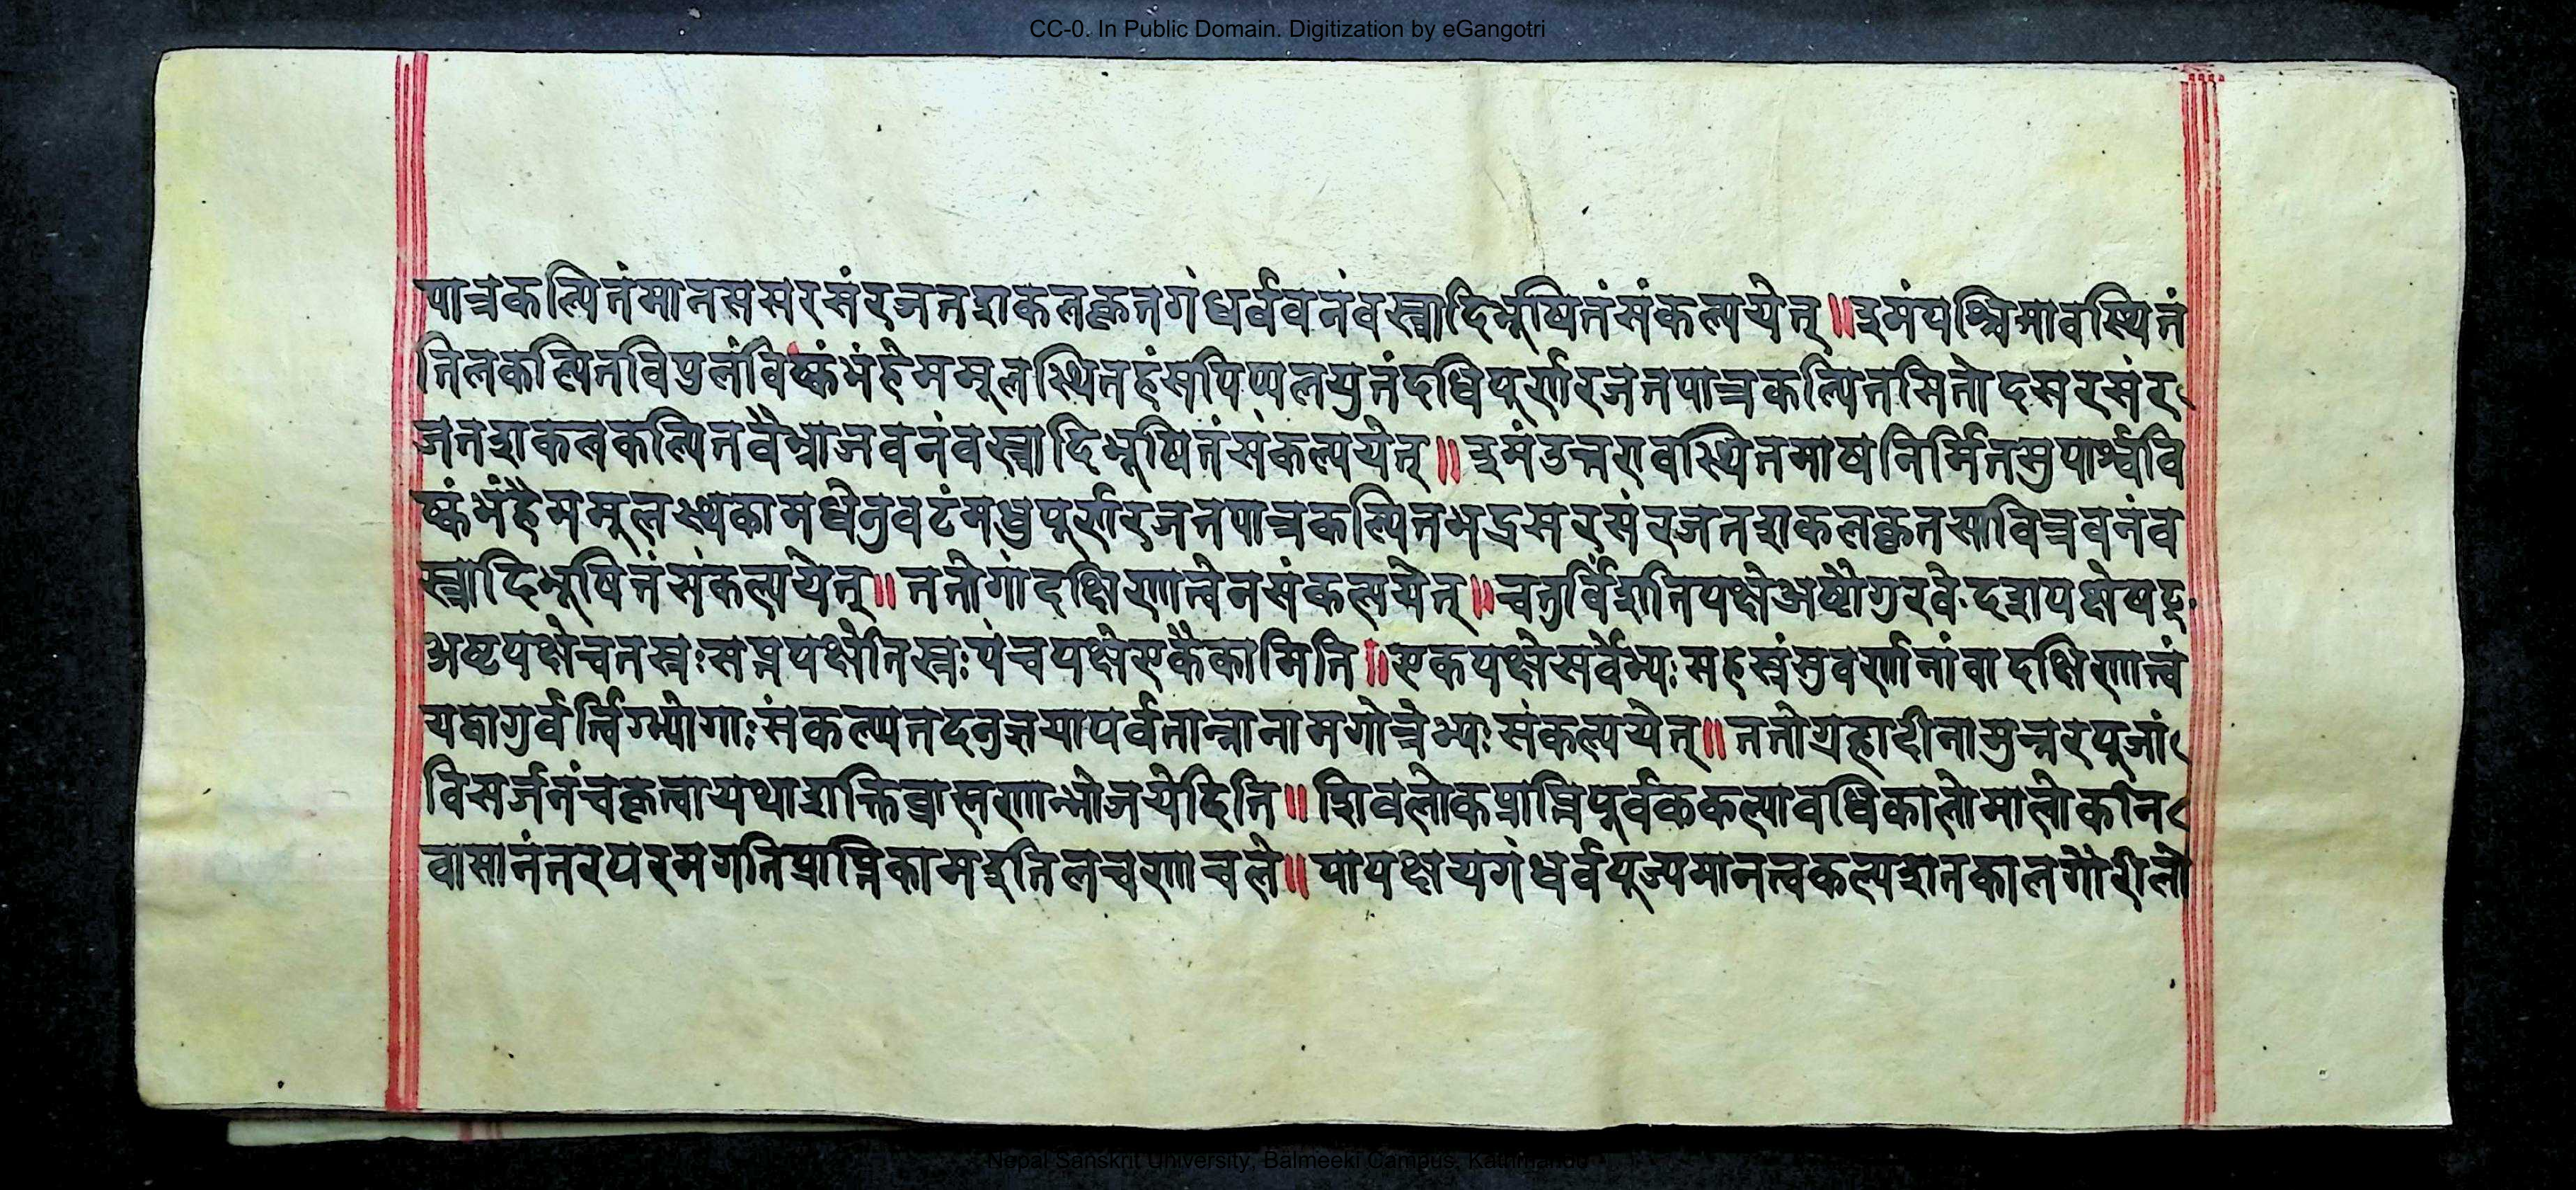 CC-0. In Public Domain. Digitization by eGangotri
पात्रकल्पितंमानससरसंरजतशकलकृतगंधर्ववनंवस्त्रादिभूषितंसंकल्पयेत् ॥ इमंपश्चिमावस्थितं
तिलकल्पितविपुलंविष्कंभंहेममूलस्थितहंसपिप्पलयुतंदधिपूर्णरजतपात्रकल्पितसितोदसरसंर
जतशकलकल्पितवैभ्राजवनंवस्त्रादिभूषितंसंकल्पयेत् ॥ इमंउत्तरावस्थितमाषनिर्मितसुपार्श्ववि
ष्कंभंहैममूलस्थकामधेनुवटंमधुपूर्णरजतपात्रकल्पितभद्रसरसंरजतशकलकृतसावित्रवनंव
स्त्रादिभूषितंसंकल्पयेत् ॥ ततोगांदक्षिणात्वेनसंकल्पयेत् ॥ चतुर्विंशतिपक्षेअष्टौगुरवे दशपक्षेषट्
अष्टपक्षेचतस्रः सप्तपक्षेतिस्रः पंचपक्षेएकैकामिति ॥ एकपक्षेसर्वेभ्यः सहस्रंसुवर्णानांवादक्षिणात्वं
यद्वागुर्वर्त्विग्भ्योगाः संकल्प्यतदनुज्ञयापर्वतान्नानामगोत्रेभ्यः संकल्पयेत् ॥ ततोग्रहादीनामुत्तरपूजां
विसर्जनंचकृत्वायथाशक्तिब्राह्मणान्भोजयेदिति ॥ शिवलोकप्राप्तिपूर्वककल्पावधिकालोमालोकनि
वासानंतरपरमगतिप्राप्तिकामइतिलवणाचले ॥ पापक्षयगंधर्वपूज्यमानत्वकल्पशतकालगौरीलो
Nepal Sanskrit University, Balmeeki Campus, Kathmandu